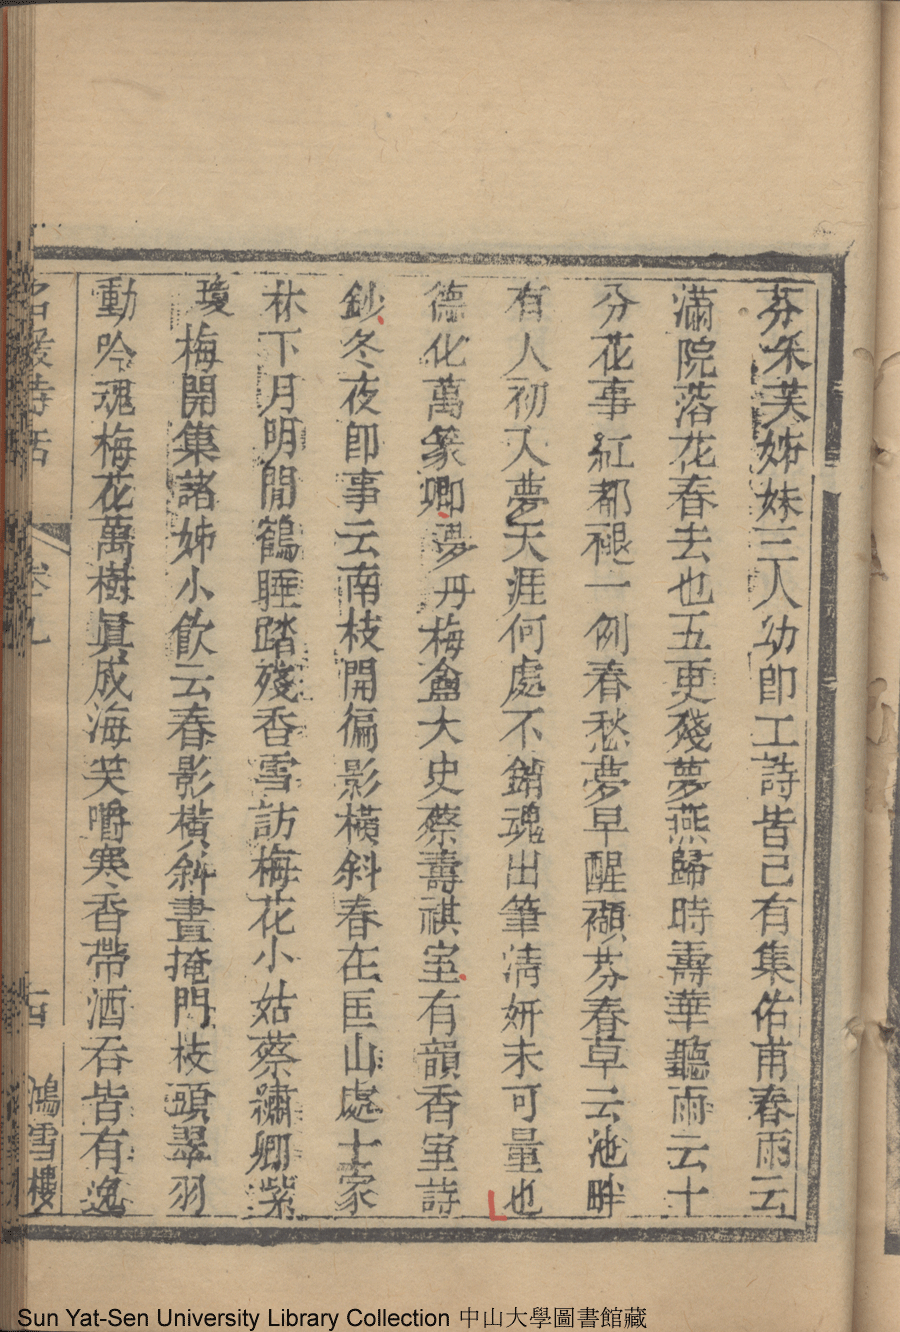 芬朱芙姊妹三人幼卽工詩皆己有集佑甫春雨云
滿院落花春去也五更殘夢燕歸時壽華聽雨云十
分花事紅都褪一例春愁夢早醒纈芬春草云池畔
有人初入夢天涯何處不銷魂出筆淸妍未可量也
德化萬篆卿夢丹梅龕大史蔡壽祺室有韻香室詩
鈔冬夜卽事云南枝開偏影橫斜春在匡山處士家
林下月明閒鶴睡踏殘香雪訪梅花小姑蔡繡卿紫
瓊梅開集諸姊小飮云春影橫斜晝掩門枝頭翠羽
動吟魂梅花萬樹眞成海笑嚼寒香帶酒吞皆有逸
名媛詩話 卷九 鴻雪樓
Sun Yat-Sen University Library Collection 中山大學圖書館藏